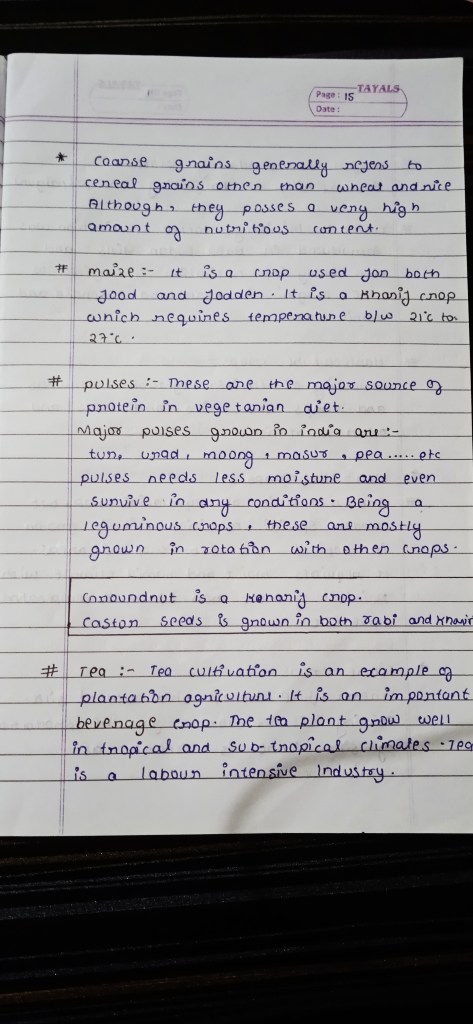 TAYALS
Page: 15
Date:
* Coarse grains generally refers to
cereal grains other than wheat and rice
Although, they posses a very high
amount of nutritious content.
# Maize :- It is a crop used for both
food and fodder. It is a Kharif crop
which requires temperature b/w 21°c to
27°c.
# Pulses :- These are the major source of
protein in vegetarian diet.
Major pulses grown in India are :-
tur, urad, moong, masur, pea ..... etc
pulses needs less moisture and even
survive in dry conditions. Being a
leguminous crops, these are mostly
grown in rotation with other crops.
Groundnut is a Kharif crop.
Castor seeds is grown in both rabi and Kharif
# Tea :- Tea cultivation is an example of
plantation agriculture. It is an important
beverage crop. The tea plant grow well
in tropical and sub-tropical climates. Tea
is a labour intensive Industry.